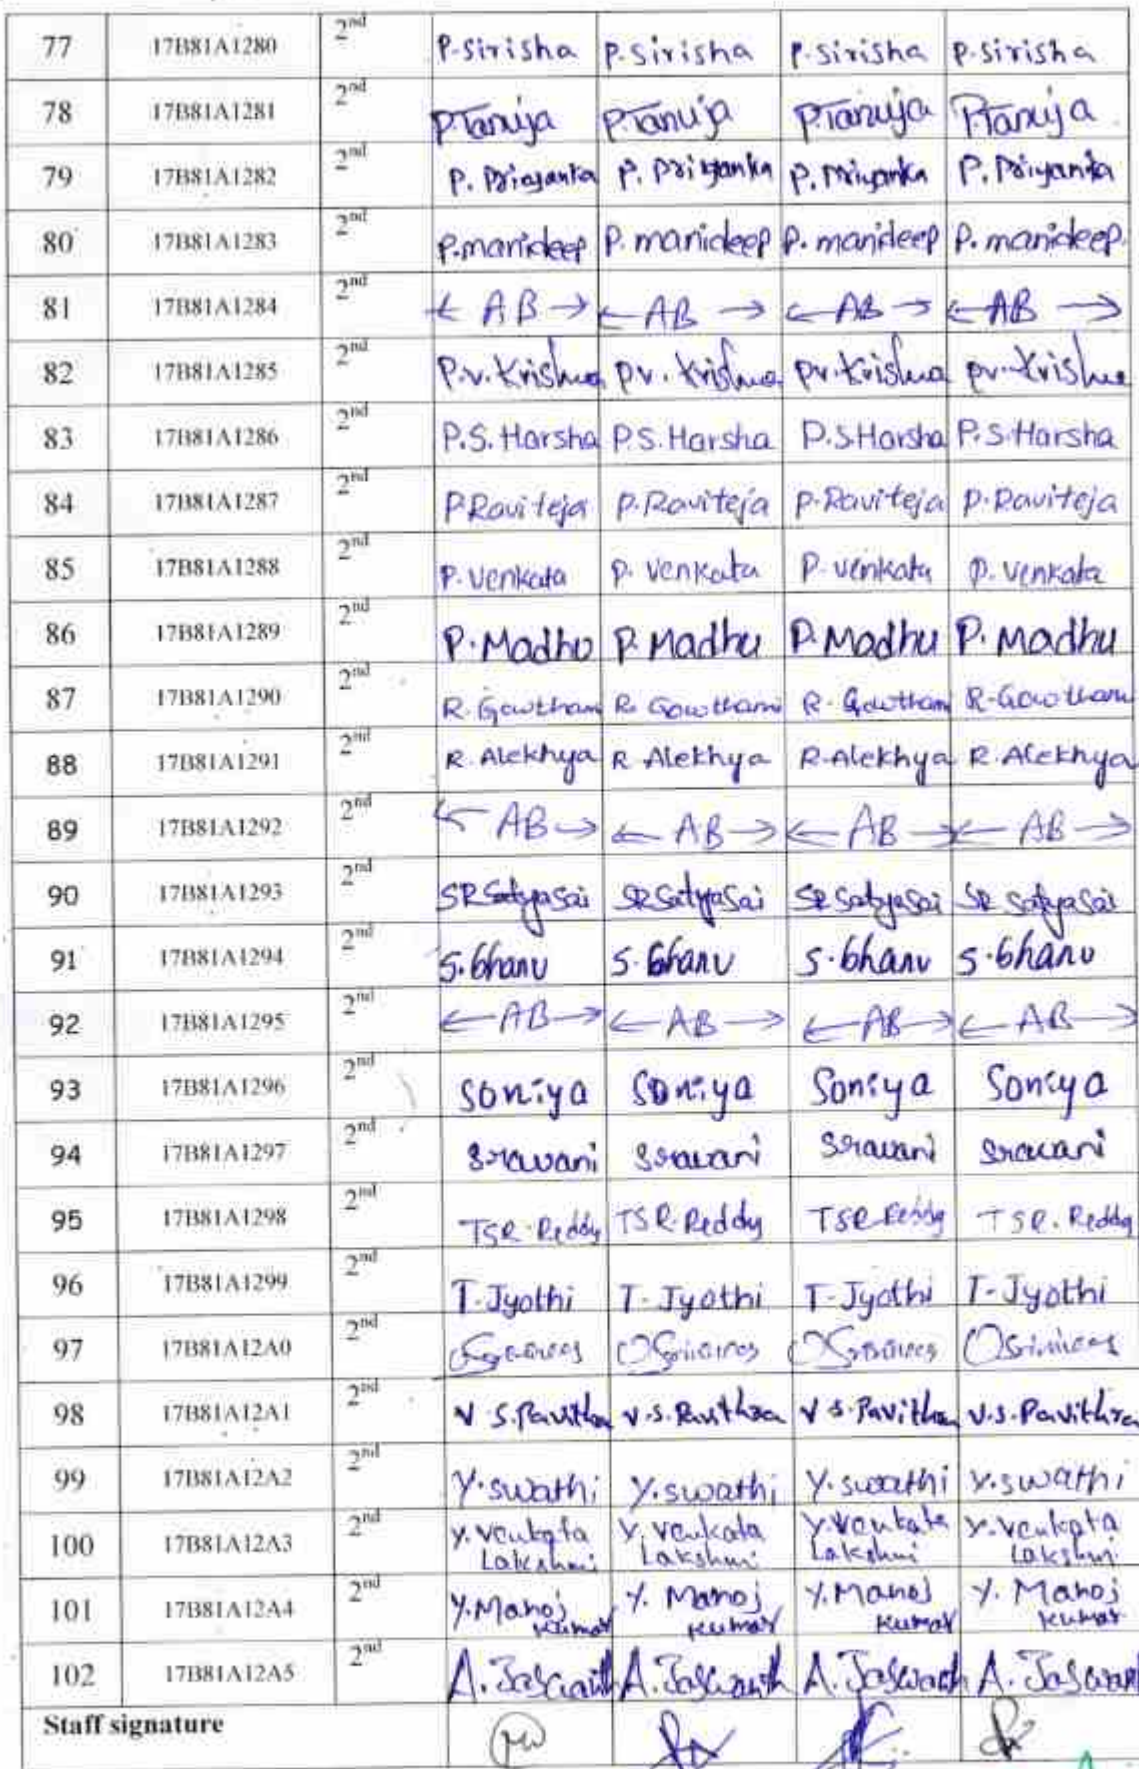 77 17B81A1280 2nd P.Sirisha P.Sirisha P.Sirisha P.Sirisha
78 17B81A1281 2nd P.Tanuja P.Tanuja P.Tanuja P.Tanuja
79 17B81A1282 2nd P. Priyanka P. Priyanka P. Priyanka P. Priyanka
80 17B81A1283 2nd P.manideep P. manideep P. manideep P. manideep.
81 17B81A1284 2nd ← AB → ← AB → ← AB → ← AB →
82 17B81A1285 2nd P.v. Krishna Pv. Krishna Pv. Krishna pv. Krishna
83 17B81A1286 2nd P.S. Harsha P.S. Harsha P.S Harsha P.S Harsha
84 17B81A1287 2nd P.Raviteja P.Raviteja P.Raviteja P.Raviteja
85 17B81A1288 2nd P. Venkata P. Venkata P. Venkata P. Venkata
86 17B81A1289 2nd P.Madhu P. Madhu P. Madhu P. Madhu
87 17B81A1290 2nd R. Gowthami R. Gowthami R. Gowthami R. Gowthami
88 17B81A1291 2nd R. Alekhya R Alekhya R. Alekhya R. Alekhya
89 17B81A1292 2nd ← AB → ← AB → ← AB → ← AB →
90 17B81A1293 2nd SR SatyaSai SR SatyaSai SR SatyaSai SR SatyaSai
91 17B81A1294 2nd S.bhanu S.bhanu S.bhanu S.bhanu
92 17B81A1295 2nd ← AB → ← AB → ← AB → ← AB →
93 17B81A1296 2nd Soniya Soniya Soniya Soniya
94 17B81A1297 2nd Sravani Sravani Sravani Sravani
95 17B81A1298 2nd TSR. Reddy TSR. Reddy TSR Reddy TSR. Reddy
96 17B81A1299 2nd T. Jyothi T. Jyothi T. Jyothi T. Jyothi
97 17B81A12A0 2nd
98 17B81A12A1 2nd V S. Pavithra V.S. Pavithra V S. Pavithra V.S. Pavithra
99 17B81A12A2 2nd Y.Swathi Y.Swathi Y.Swathi Y.Swathi
100 17B81A12A3 2nd Y. Venkata Lakshmi Y. Venkata Lakshmi Y. Venkata Lakshmi Y. Venkata Lakshmi
101 17B81A12A4 2nd Y. Manoj Kumar Y. Manoj Kumar Y. Manoj Kumar Y. Manoj Kumar
102 17B81A12A5 2nd A. Jaswanth A. Jaswanth A. Jaswanth A. Jaswanth
Staff signature